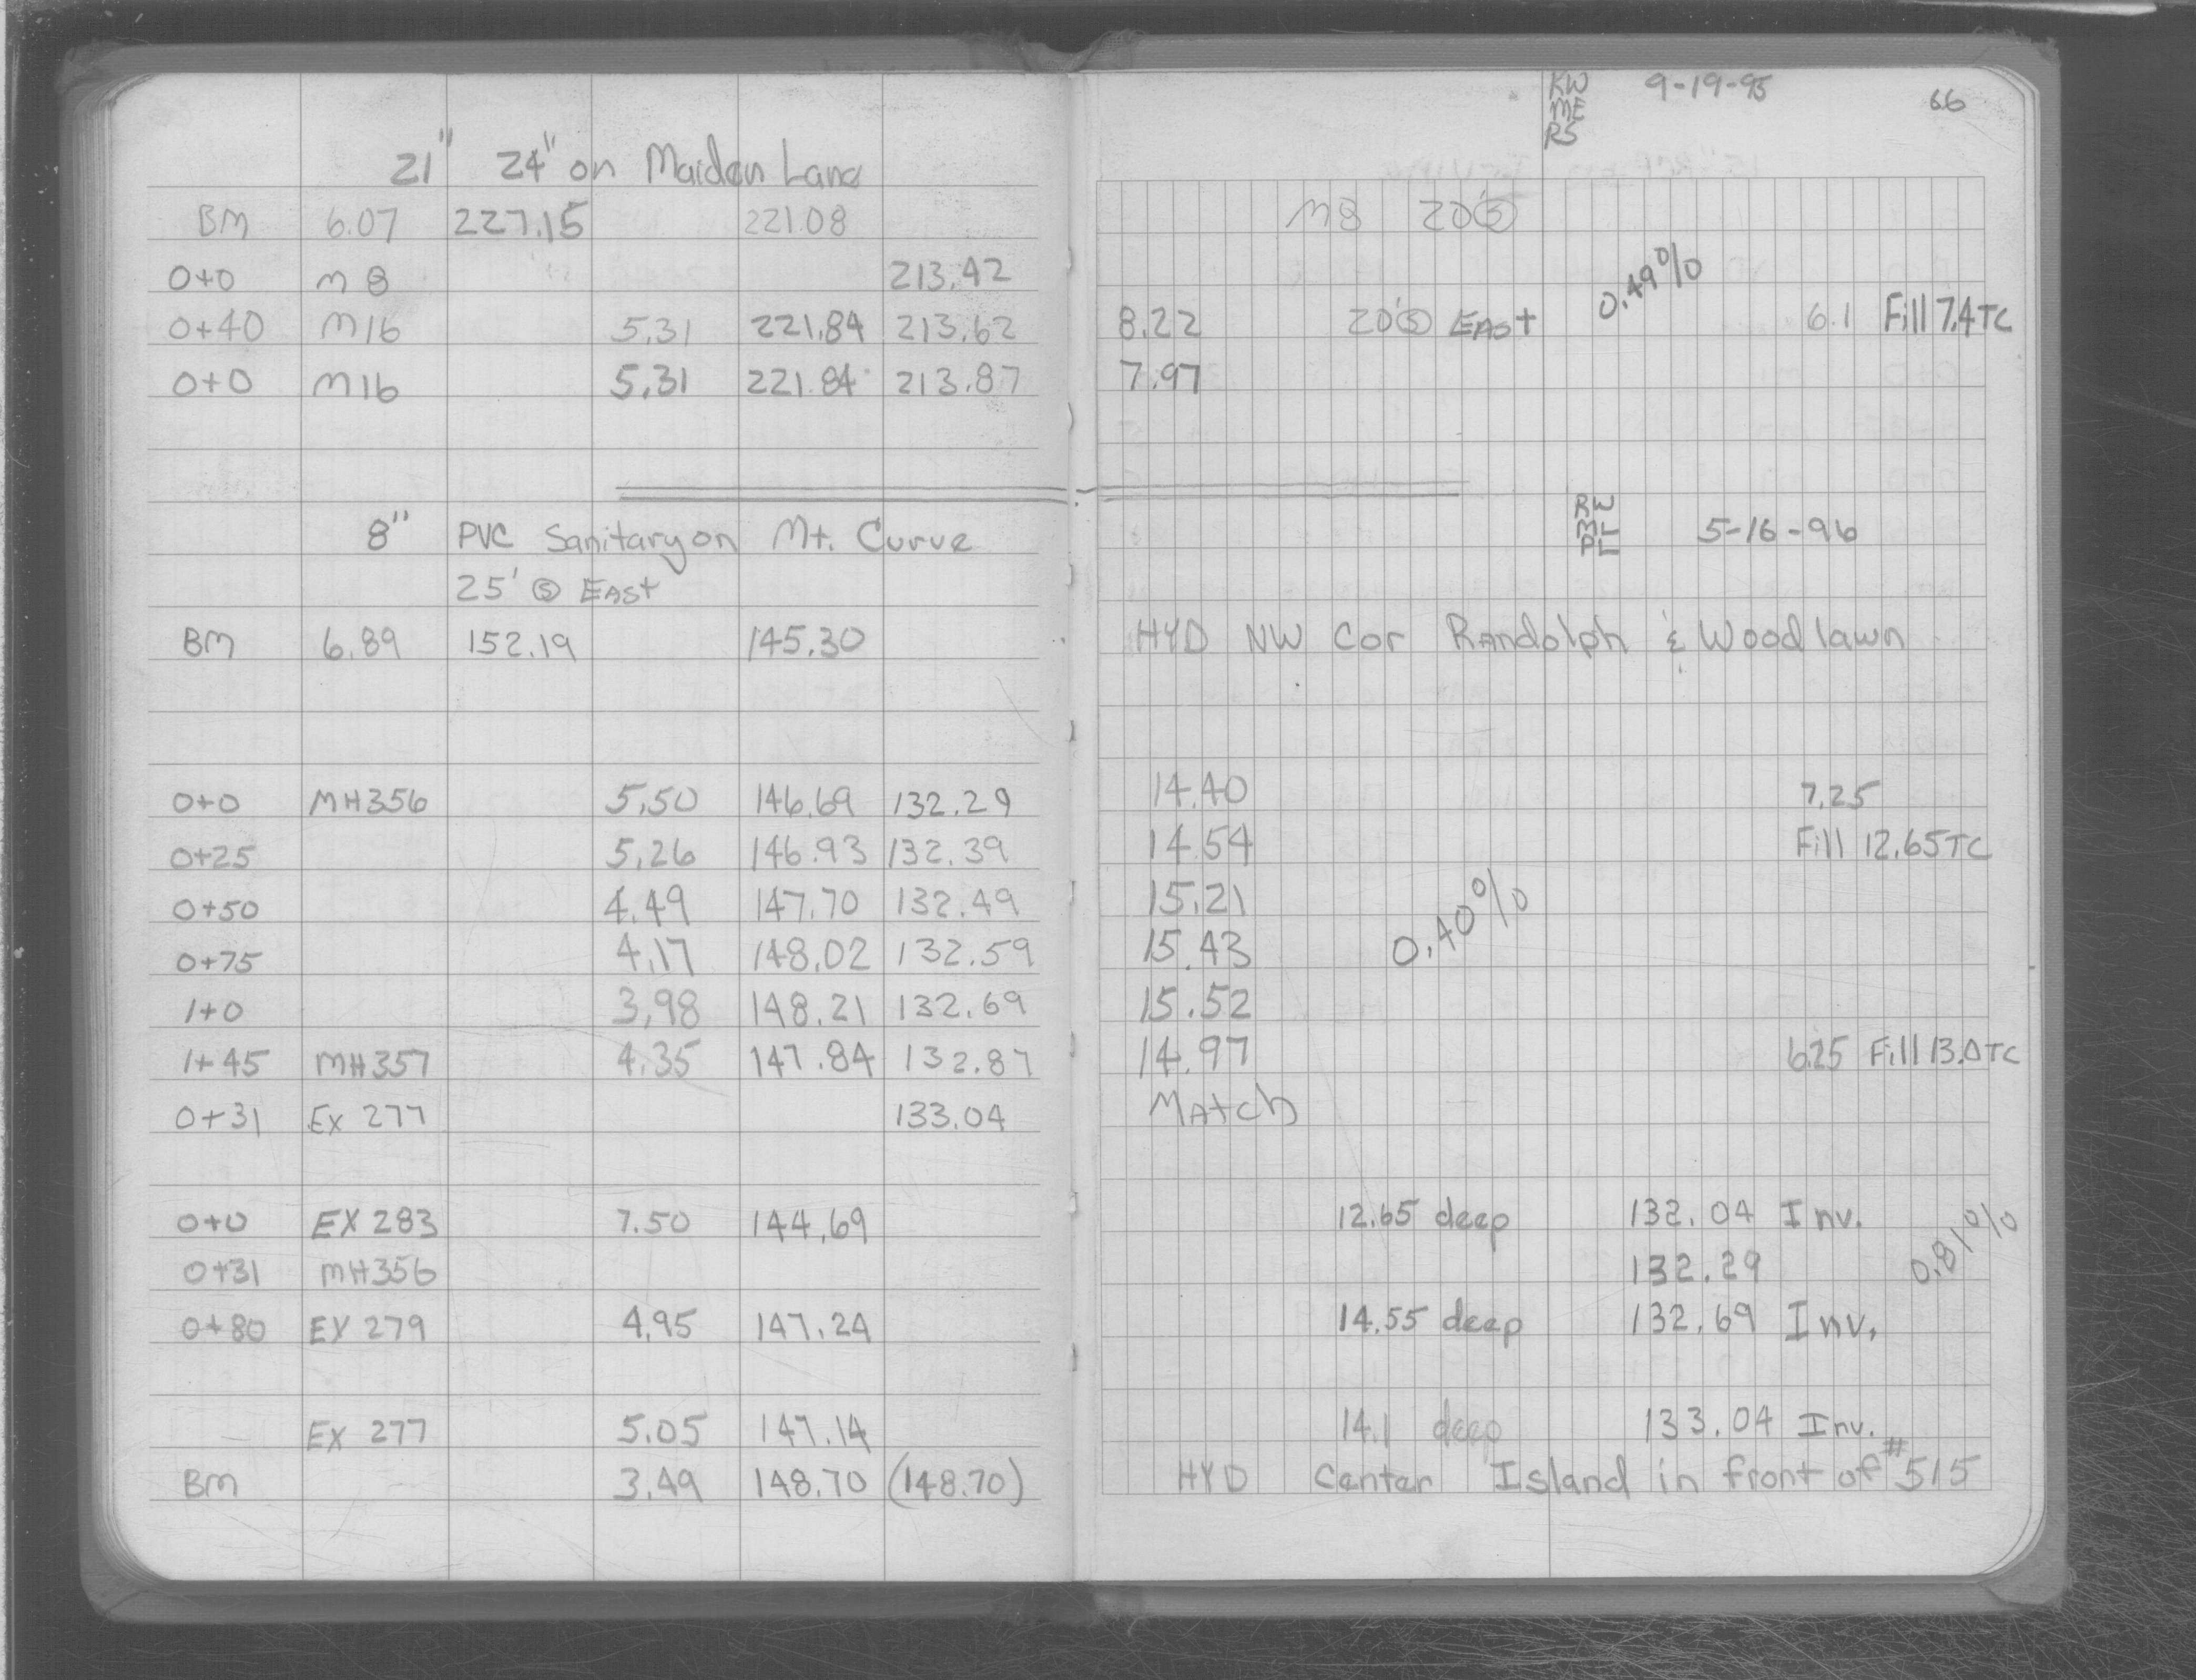 KW 9-19-95 66
ME
RS
21" 24" on Maiden Lane
BM 6.07 227.15 221.08 M8 20' Ⓢ
0+0 M8 213.42
0+40 M16 5.31 221.84 213.62 8.22 20' Ⓢ EAST 0.49% 6.1 Fill 7.4 TC
0+0 M16 5.31 221.84 213.87 7.97
RW
8" PVC Sanitary on Mt. Curve ML 5-16-96
PL
25' Ⓢ EAST
BM 6.89 152.19 145.30 HYD NW Cor Randolph & Woodlawn
0+0 MH356 5.50 146.69 132.29 14.40 7.25
0+25 5.26 146.93 132.39 14.54 Fill 12.65 TC
0+50 4.49 147.70 132.49 15.21
0+75 4.17 148.02 132.59 15.43 0.40%
1+0 3.98 148.21 132.69 15.52
1+45 MH357 4.35 147.84 132.87 14.97 6.25 Fill 13.0 TC
0+31 EX 277 133.04 MATCH
0+0 EX 283 7.50 144.69 12.65 deep 132.04 Inv.
0+31 MH356 132.29 0.81%
0+80 EX 279 4.95 147.24 14.55 deep 132.69 Inv.
EX 277 5.05 147.14 14.1 deep 133.04 Inv.
BM 3.49 148.70 (148.70) HYD Center Island in front of #515